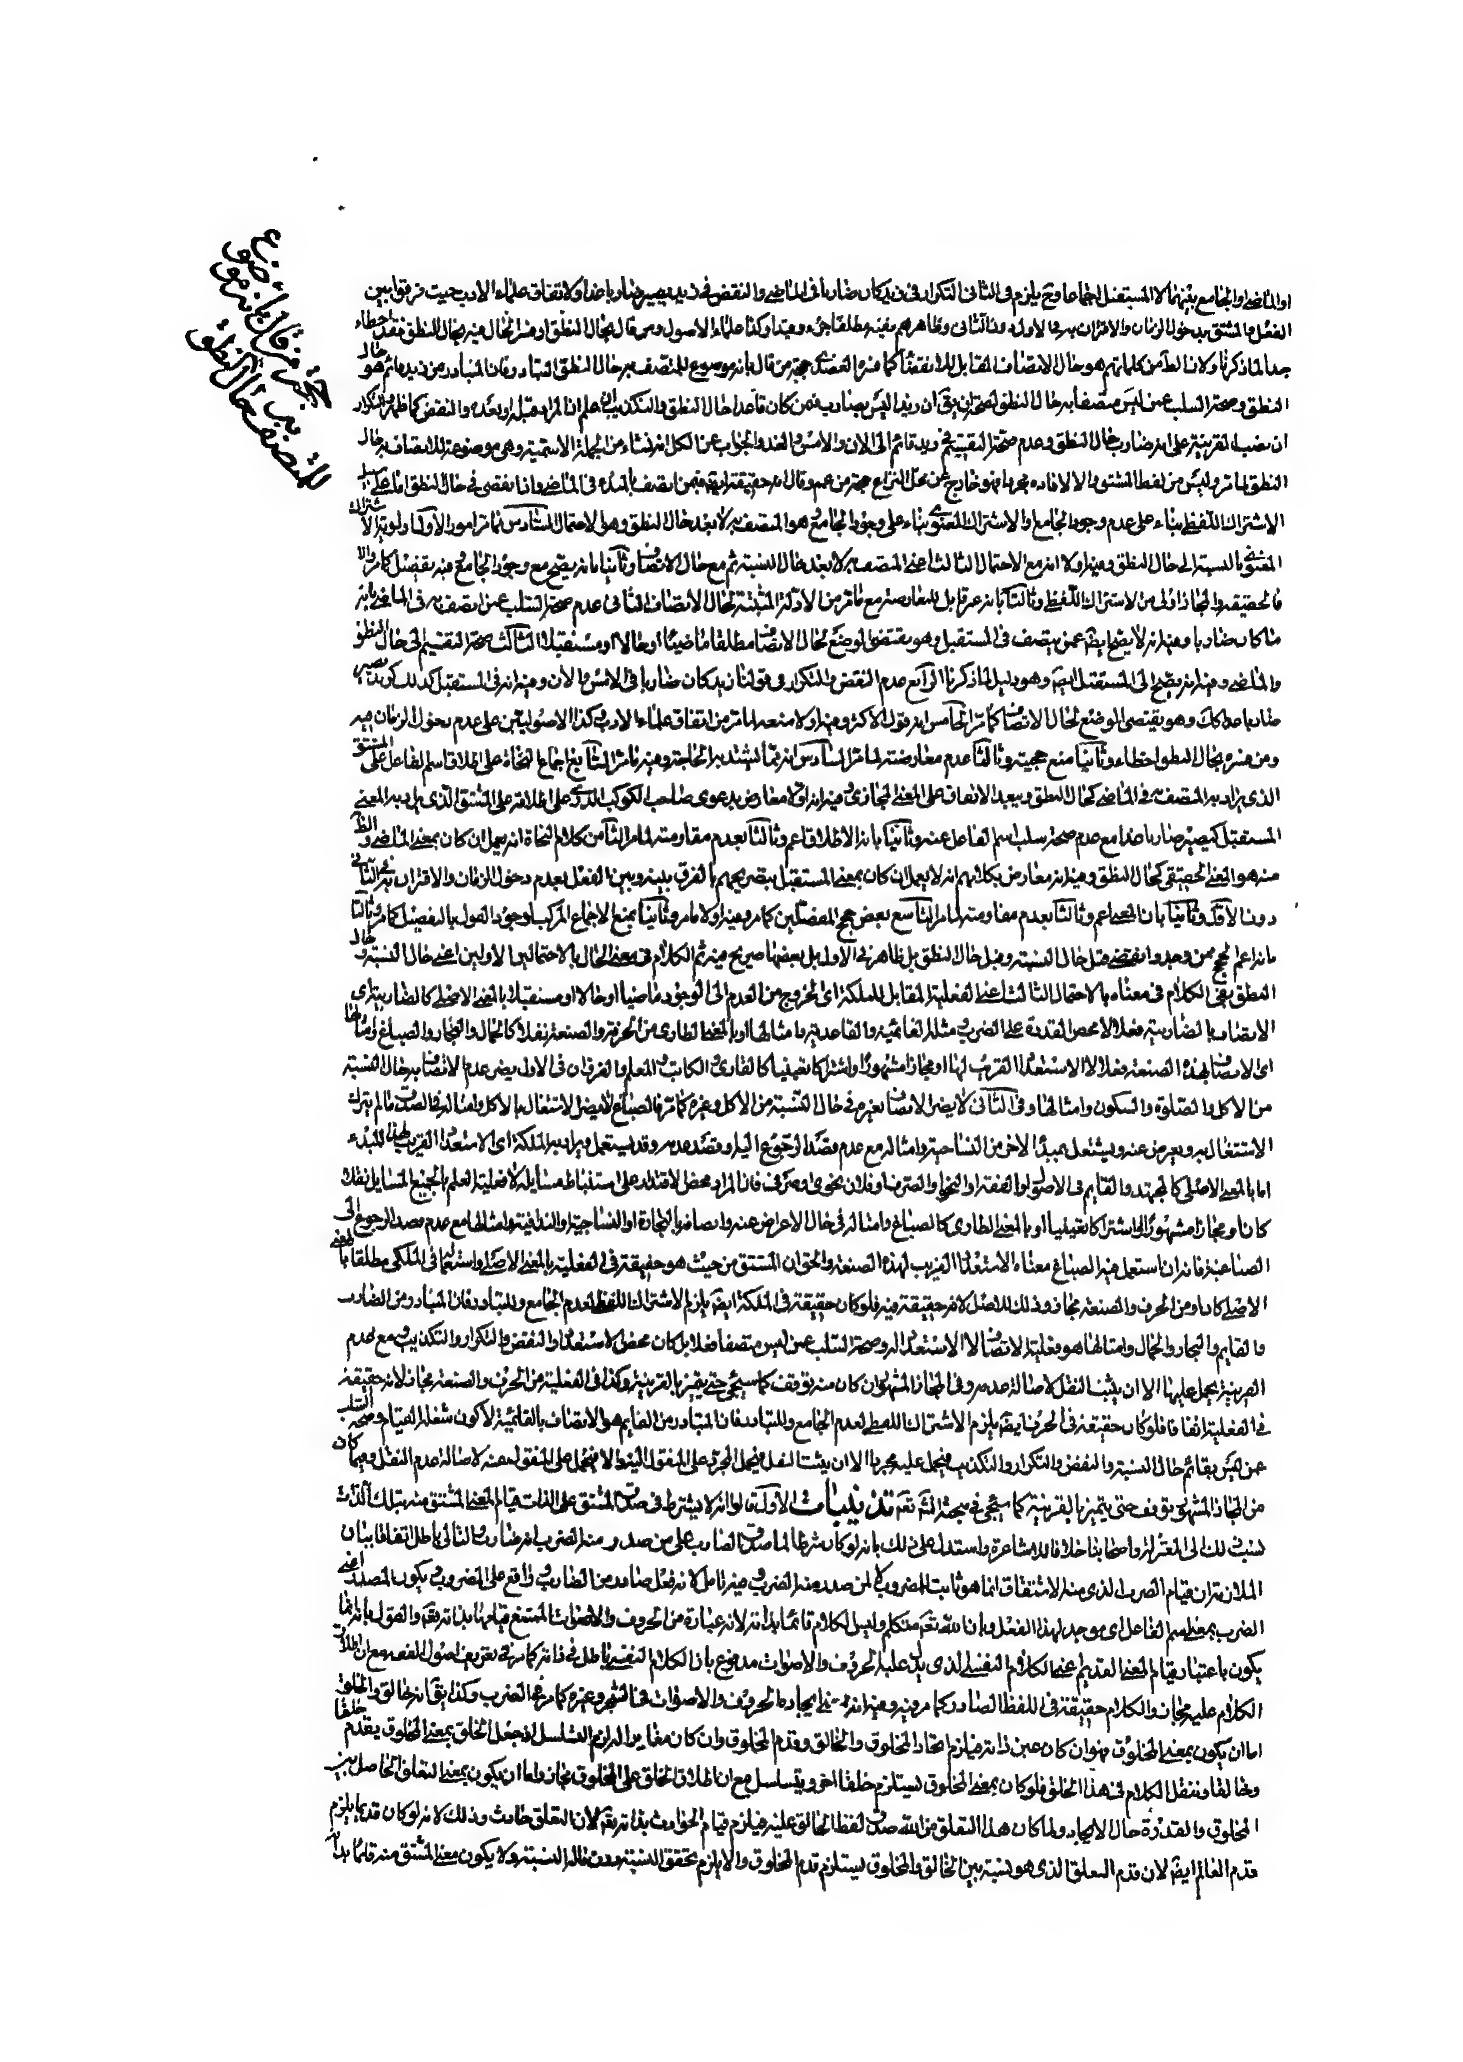 حجة من قال بانه موضوع
للمتصف بحال النطق
او الماضي والجامع بينهما لا المستقبل اجماعا وح يلزم في الثاني التكرار في زيد كان ضاربا في الماضي والنقض في زيد يصير ضاربا غدا ولاتفاق علماء الادب حيث فرقوا بين
الفعل والمشتق بدخول الزمان والاقتران به في الاول دون الثاني وظاهرهم نفيه مطلقا جزء وقيدا وكذا علماء الاصول ومن قال بحال النطق او فسر الحال فيه بحال النطق فقد اخطاء
جدا لما ذكرنا ولان الظ من كلماتهم هو حال الاتصاف المقابل للملكة كما فسره العضدي حجة من قال بانه موضوع للمتصف به حال النطق التبادر فان المتبادر من زيد قائم هو حال
النطق وصحة السلب عمن ليس متصفا به حال النطق لصحة ان يقال ان زيدا ليس بضارب فمن كان قاعدا حال النطق والتكذيب ان علم ان المراد قبله او بعده والنقض كما ظهر والتكرار
ان نصب القرينة على انه ضارب حال النطق وعدم صحة التقييد في زيد قائم الى الان والامس والغد والجواب عن الكل انه نشاء من الجملة الاسمية وهي موضوعة للاتصاف به حال
النطق لما مر وليس من لفظ المشتق والا لافاده مجردا فهو خارج عن محل النزاع حجة من عمم وقال انه حقيقة ايضا فيمن اتصف بالمبدء في الماضي واذا نقضى في حال النطق اما على سبيل
الاشتراك اللفظي بناء على عدم وجود الجامع والاشتراك المعنوي بناء على وجود الجامع وهو المتصف به لا بعد حال النطق وهو الاحتمال السادس مما مر امور الاول اولوية الاشتراك
المعنوي بالنسبة الى حال النطق وفيه اولا انه مع الاحتمال الثالث اعني المتصف به لا بعد حال النسبة ثم مع حال الاتصاف وثانيا بانه يصح مع وجود الجامع وفيه تفصيل كما مر والا
فالحقيقة والمجاز اولى من الاشتراك اللفظي وثالثا بانه غير قابل للمعارضة مع ما مر من الادلة المثبتة لحال الاتصاف الثاني عدم صحة السلب عمن اتصف به في الماضي بانه
ما كان ضاربا وفيه انه لا يصح ايضا عمن يتصف في المستقبل وهو يقتضي الوضع لحال الاتصاف مطلقا ماضيا او حالا او مستقبلا الثالث صحة التقسيم الى حال النطق
والماضي وفيه انه يصح الى المستقبل ايضا وهو دليل لما ذكرنا الرابع عدم النقض والتكرار في قولنا زيد كان ضاربا في الامس والان وفيه انه في المستقبل كذلك كزيد يصير
ضاربا غدا كك وهو يقتضي الوضع لحال الاتصاف كما مر الخامس انه قول الاكثر وفيه اولا منعه لما مر من اتفاق علماء الادب وكذا الاصوليين على عدم دخول الزمان فيه
ومن فسره بحال النطق اخطاء وثانيا منع حجيته وثالثا عدم معارضته لما مر السادس انه مما يشتد به الحاجة وفيه ما مر السابع اجماع النحاة على اطلاق اسم الفاعل على المشتق
الذي يراد به المتصف به في الماضي كحال النطق وبعيد الاتفاق على المعنى المجازي وفيه انه اولا معارض بدعوى صاحب الكوكب الدري على اطلاقه على المشتق الذي يراد به المعنى
المستقبل كيصير ضاربا غدا مع عدم صحة سلب اسم الفاعل عنه وثانيا بان الاطلاق اعم وثالثا بعدم مقاومته لما مر الثامن كلام النحاة انه يعمل ان كان بمعنى الماضي والظ
منه هو المعنى الحقيقي كحال النطق وفيه انه معارض بكلامهم انه لا يعمل ان كان بمعنى المستقبل بتصريحهم بالفرق بينه وبين الفعل بعدم دخول الزمان والاقتران به في الثاني
دون الاول وثانيا بان المعنى اعم وثالثا بعدم مقاومته لما مر التاسع بعض حجج المفصلين كما مر وفيه اولا ما مر وثانيا بمنع الاجماع المركب لوجود القول بالتفصيل كما مر وثالثا
بانه اعم الحجج من وجه واقتضى قبل حال النسبة وقبل حال النطق بل ظاهر في الاول بل بعضها صريح فيه ثم الكلام في معنى الحال بالاحتمالين الاولين اعني حال النسبة وحال
النطق بقي الكلام في معناه بالاحتمال الثالث اعني الفعلية المقابل للملكة اى الخروج من العدم الى الوجود ماضيا او حالا او مستقبلا بالمعنى الاصلي كالضاربية اى
الاتصاف بالضاربية فعلا لا محض القدرة على الضرب ومثله القائمية والقاعدية وامثالها او بالمعنى الطاري من الحرفة والصنعة فعلا كالحمال والنجار والصباغ وامثالها
اى الاتصاف بهذه الصنعة فعلا لا الاستعداد القريب لها او مجازا مشهورا او اشتراكا تعينيا كالقارى والكاتب والمعلم والفرق ان في الاول يضر عدم الاتصاف به حال النسبة
من الاكل والصلوة والسكون وامثالها وفي الثاني لا يضر الاتصاف بغيره في حال النسبة من الاكل وغيره كما مر فالصباغ لا يضر الاشتغال بالاكل وامثاله في الصدق ما لم يترك
الاشتغال به ويعرض عنه ويشتغل بمبدء الاخر من النساجية وامثاله مع عدم قصد الرجوع اليه وقصد عدمه وقد يستعمل ويراد به الملكة اى الاستعداد القريب لهذا المبدء
اما بالمعنى الاصلي كالمجتهد والقايم في الاصول والفقه او النحو والصرف وفلان نحوي وصرفي فان المراد محض الاقتدار على استنباط مسايله لا فعلية العلم بالجميع المسايل بفلك
كان او مجازا مشهورا او اشتراكا تعينيا او بالمعنى الطاري كالصباغ وامثاله في حال الاعراض عنه واتصافه بالنجارة او النساجية والندافية وامثالها مع عدم قصد الرجوع الى
الصناعية فانه ان استعمل فيه الصباغ معناه الاستعداد القريب لهذه الصنعة والحق ان المشتق من حيث هو حقيقة في الفعلية بالمعنى الاصلي واستعماله في الملكي مطلقا بالمعنى
الاصلي كان او من الحرف والصنعة مجاز وذلك للاصل لانه حقيقة فيه فلو كان حقيقة في الملكة ايضا يلزم الاشتراك اللفظي لعدم الجامع وللتبادر فان المتبادر من الضارب
والقايم والنجار والحمال وامثالها هو فعلية الاتصاف لا الاستعداد له وصحة السلب عمن ليس متصفا فعلا بل كان محض الاستعداد والنقض والتكرار والتكذيب ومع عدم
القرينة يحمل عليها الا ان يثبت النقل لاصالة عدمه وفي المجاز المشهور ان كان منه توقف كما سيجيء حتى يتميز بالقرينة وكذا في الفعلية من الحرف والصنعة مجاز لانه حقيقة
في الفعلية اتفاقا فلو كان حقيقة في الحرف ايضا يلزم الاشتراك اللفظي لعدم الجامع وللتبادر فان المتبادر من القايم هو الاتصاف بالقائمية لا كون شغله القيام وصحة السلب
عن ليس بقائم حال النسبة والنقض والتكرار والتكذيب فيحمل عليه مجردا الا ان يثبت النقل فيحمل المجرد على المنقول اليه والا فيحمل على المنقول عنه لاصالة عدم النقل وفيما كان
من المجاز المشهور يتوقف حتى يتميز بالقرينة كما سيجيء في مبحثه انشاء الله تعالى تذنيبات الاول قالوا انه لا يشترط في صدق المشتق على الذات قيام المعنى المشتق منه بتلك الذات
نسب ذلك الى المعتزلة واصحابنا خلافا للاشاعرة واستدل على ذلك بانه لو كان شرطا لما صدق الضارب على من صدر منه الضرب انه ضارب والتالي باطل اتفاقا بيان
الملازمة ان قيام الضرب الذي منه الاشتقاق انما هو ثابت للمضروب لا لمن صدر منه الضرب وفيه تامل لانه فعل صادر من الضارب وواقع على المضروب ويكون المصدر اعني
الضرب بمعنى اسم الفاعل اى موجد لهذا الفعل وبان الله تعالى متكلم وليس الكلام قائما بذاته لانه عبارة من الحروف والاصوات الممتنع قيامها بذاته تعالى والقول بانه انما
يكون باعتبار قيام المعنى القديم اعني الكلام النفسي الذي يدل عليه الحروف والاصوات مدفوع بان الكلام النفسي باطل في ذاته كما مر في تعريف اصول الفقه مع ان اطلاق
الكلام عليه مجاز والكلام حقيقة في اللفظ الصادر كما مر وفيه انه بمعنى ايجاد الحروف والاصوات في الشجر وغيره كما مر في الضرب وكذا يقال انه خالق والخلق
اما ان يكون بمعنى المخلوق فهو ان كان عين ذاته فيلزم اتحاد المخلوق والخالق وقدم المخلوق وان كان مغاير الذات يلزم التسلسل اذ جعل الخلق بمعنى المخلوق يقدم خلقا
وخالقا وننقل الكلام في هذا الخلق فلو كان بمعنى المخلوق ليستلزم خلقا اخر ويتسلسل مع ان اطلاق الخلق على المخلوق مجاز واما ان يكون بمعنى التعلق الحاصل بين
المخلوق والقدرة حال الايجاد ولما كان هذا التعلق من الله صدق لفظ الخالق عليه فيلزم قيام الحوادث بذاته تعالى لان التعلق حادث وذلك لانه لو كان قديما يلزم
قدم العالم ايضا لان قدم التعلق الذي هو نسبة بين الخالق والمخلوق ليستلزم قدم المخلوق والا يلزم تحقق النسبة بدون النسبة ولا يكون معنى المشتق منه قائما بذاته